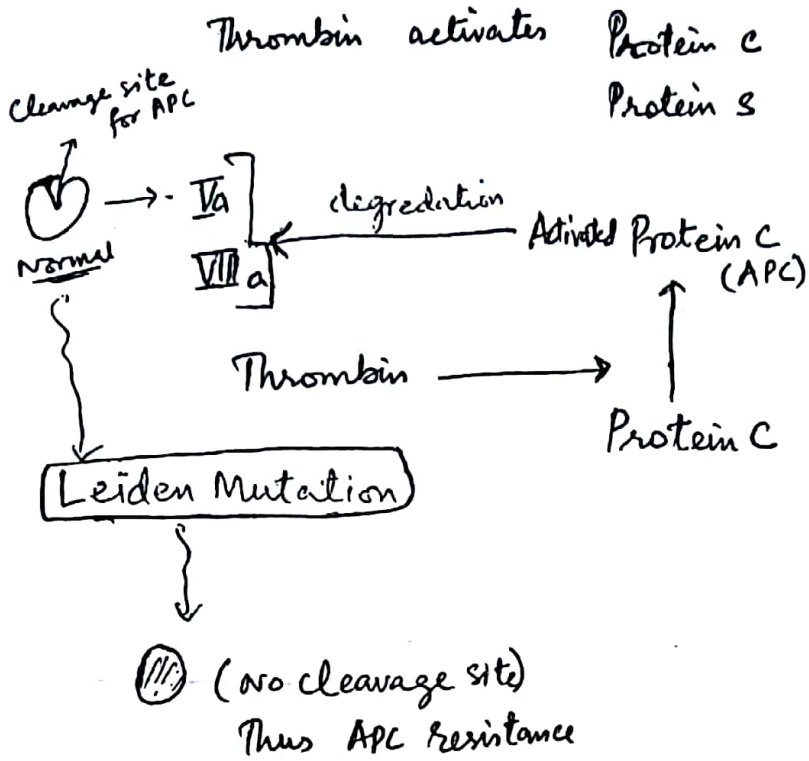 Thrombin activates Protein C
Protein S
Cleavage site
for APC
Va
degredation
Normal
VIII a
Activated Protein C
(APC)
Thrombin
Protein C
Leiden Mutation
(No cleavage site)
Thus APC resistance